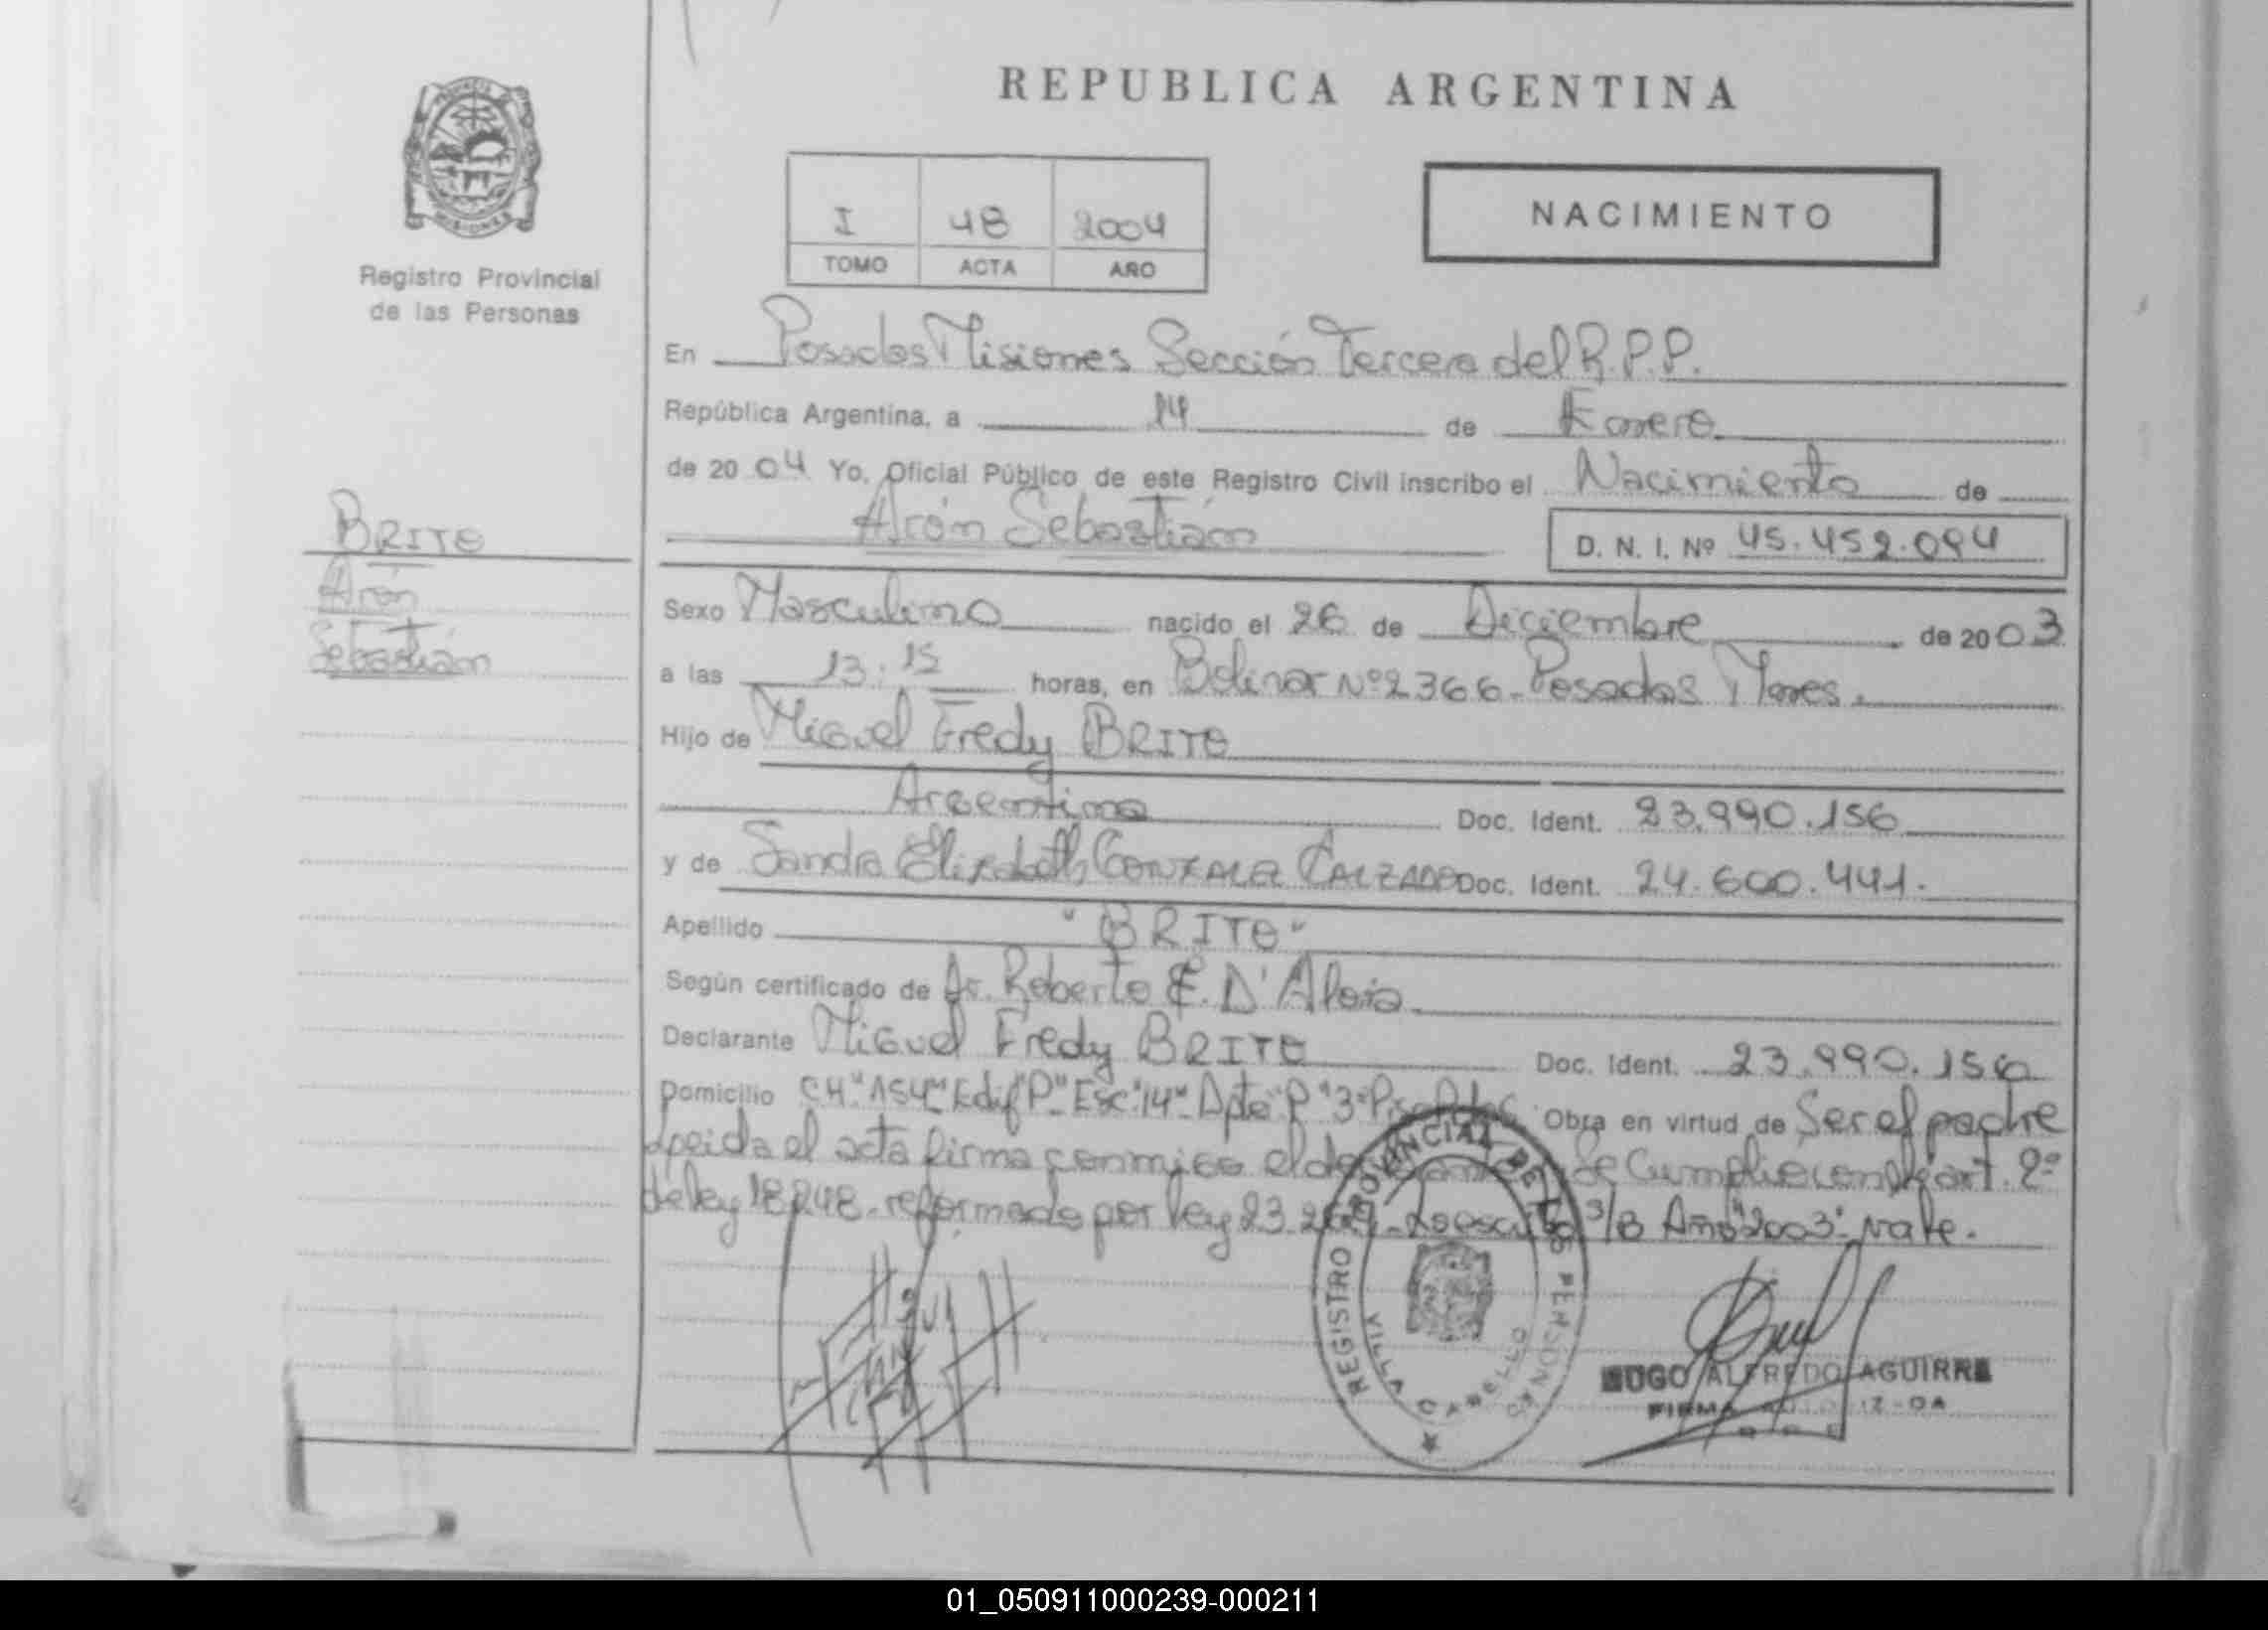 REPUBLICA ARGENTINA
MISIONES
Registro Provincial
de las Personas
I 48 2004
TOMO ACTA AÑO
NACIMIENTO
En Posadas Misiones Sección Tercera del R.P.P.
República Argentina, a 14 de Enero
de 2004 Yo, Oficial Público de este Registro Civil inscribo el Nacimiento de
Arón Sebastián D. N. I. Nº 45.452.094
BRITO
Arón
Sebastián
Sexo Masculino nacido el 26 de Diciembre de 2003
a las 13:15 horas, en Bolivar Nº 2366 - Posadas Mnes.
Hijo de Miguel Fredy BRITO
Argentino Doc. Ident. 23.990.156
y de Sandra Elizabeth GONZALEZ CALZADO Doc. Ident. 24.600.441.
Apellido "BRITO"
Según certificado de Dr. Roberto E. D'Aloia
Declarante Miguel Fredy BRITO Doc. Ident. 23.990.156
Domicilio CH "154" Edif "P" Esc "14" Dpto "P" 3º Piso Pdas Obra en virtud de Ser el padre
Leida el acta firma conmigo el Se Cumplió con el art. 2º
de ley 18248 - reformado por ley 23.264 - 3/B Año "2003" Vale.
REGISTRO PROVINCIAL DE LAS PERSONAS
VILLA CABELLO
HUGO ALFREDO AGUIRRE
FIRMA AUTORIZADA
01_050911000239-000211